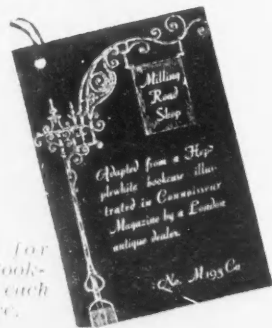 Milling
Road
Shop
Adapted from a Hep-
plewhite bookcase illus-
trated in Connoisseur
Magazine by a London
antique dealer.
No. M193 Ca
for
ook-
each
e,